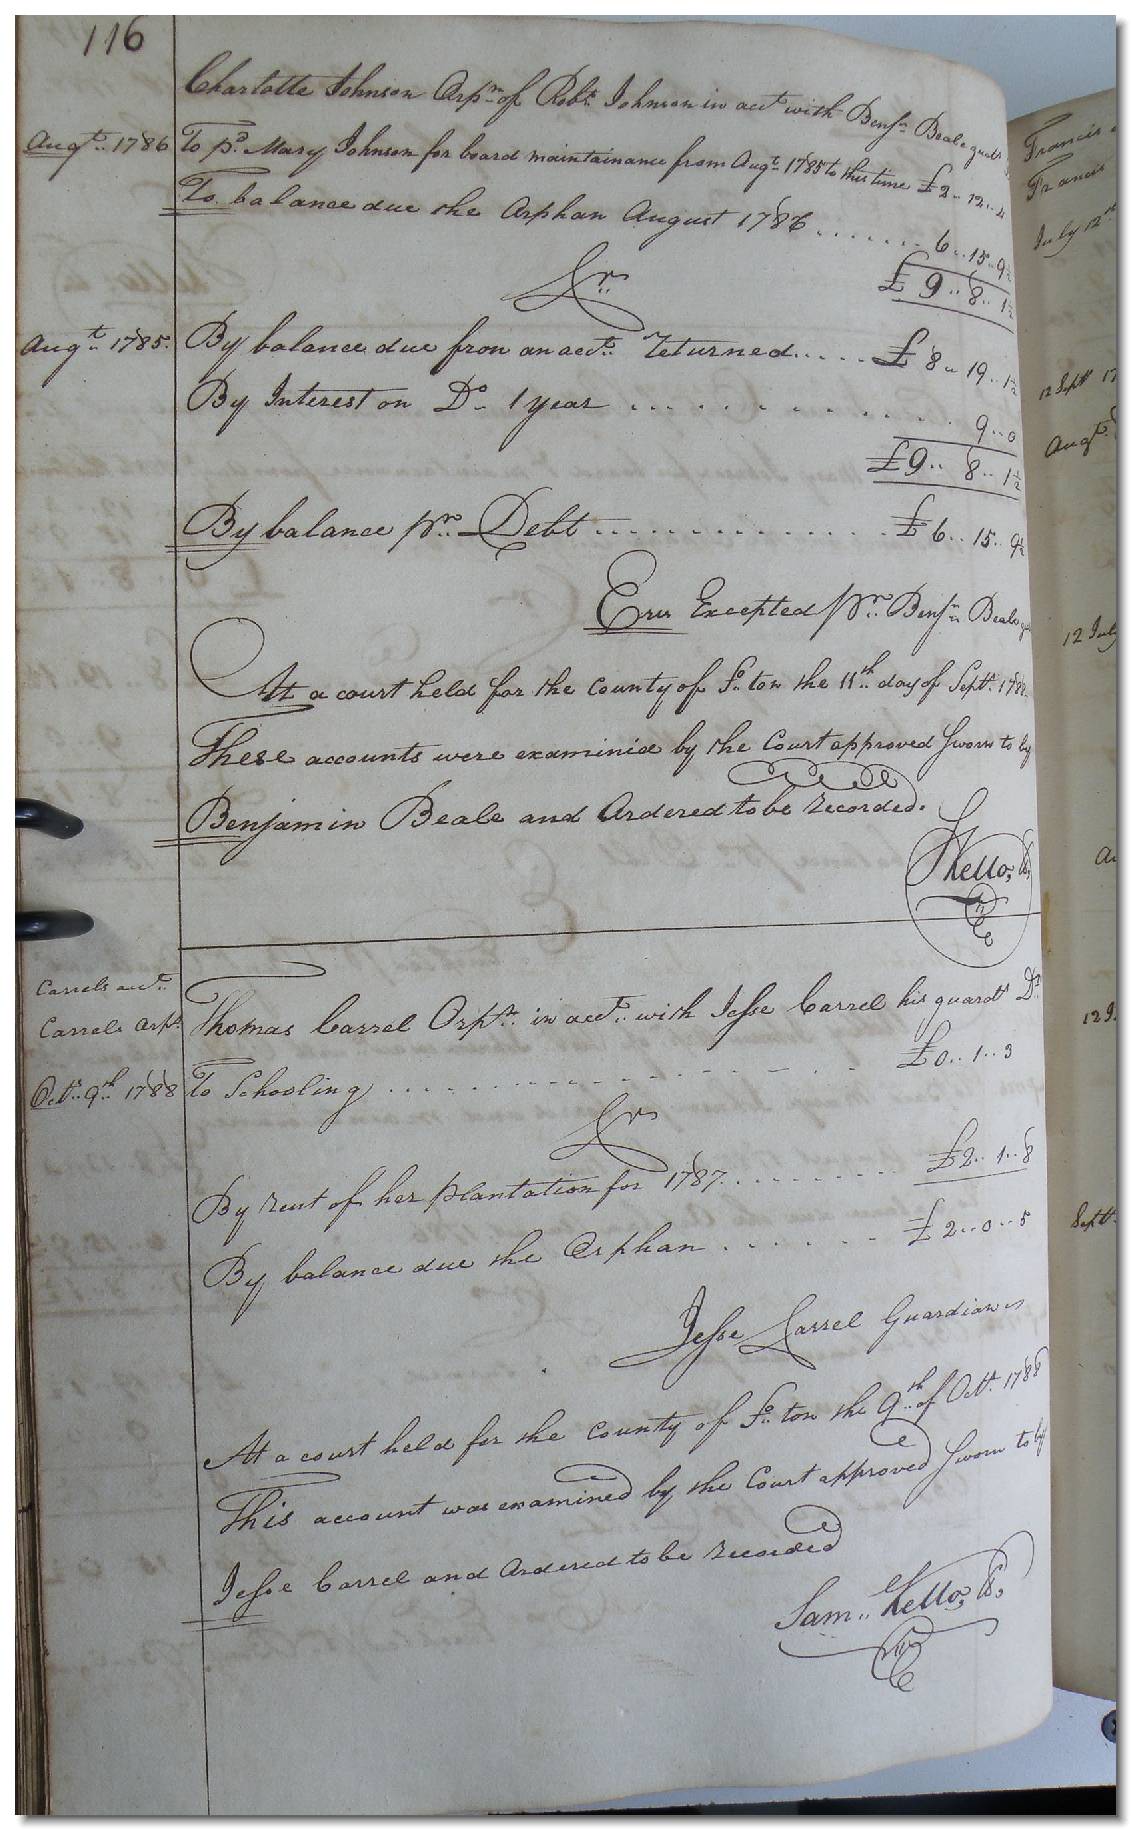 116
Charlotte Johnson Orpn. of Robt. Johnson in acct. with Benjn. Beale guard
Augt. 1786 To pd. Mary Johnson for board maintainance from Augt. 1785 to this time £2..12..4
To balance due the Orphan August 1786 ....... 6..15..9½
£9..8..1½
Cr.
Augt. 1785. By balance due from an acct. returned..... £8..19..1½
By Interest on Do. 1 year ... . . . . . . . . . 9..0
£9..8..1½
By balance pr. Debt ............. £6..15..9½
Errs Excepted pr. Benjn. Beale
At a court held for the county of So.ton the 11th. day of Septr. 178
These accounts were examinied by the Court approved Sworn to by
Benjamin Beale and Ordered to be recorded.
S Kello, Ck,
Carrels acct.
Carrels orpt. Thomas Carrel Orpn. in acct. with Jesse Carrel his guardn Dr.
Octr. 9th. 1788 To Schooling . . . . . . . . . . £0..1..3
Cr
By rent of her plantation for 1787......... £2..1..8
By balance due the Orphan . . . . . . . £2..0..5
Jesse Carrel Guardian
At a court held for the county of So.ton the 9th. of Octr. 1788
This account was examined by the Court approved Sworn to by
Jesse Carrel and Ordered to be recorded
Sam.. Kello, Ck,
Francis
Francis
July 12th
12 Septr 17
Augt.
12 July
12 J
Septr.